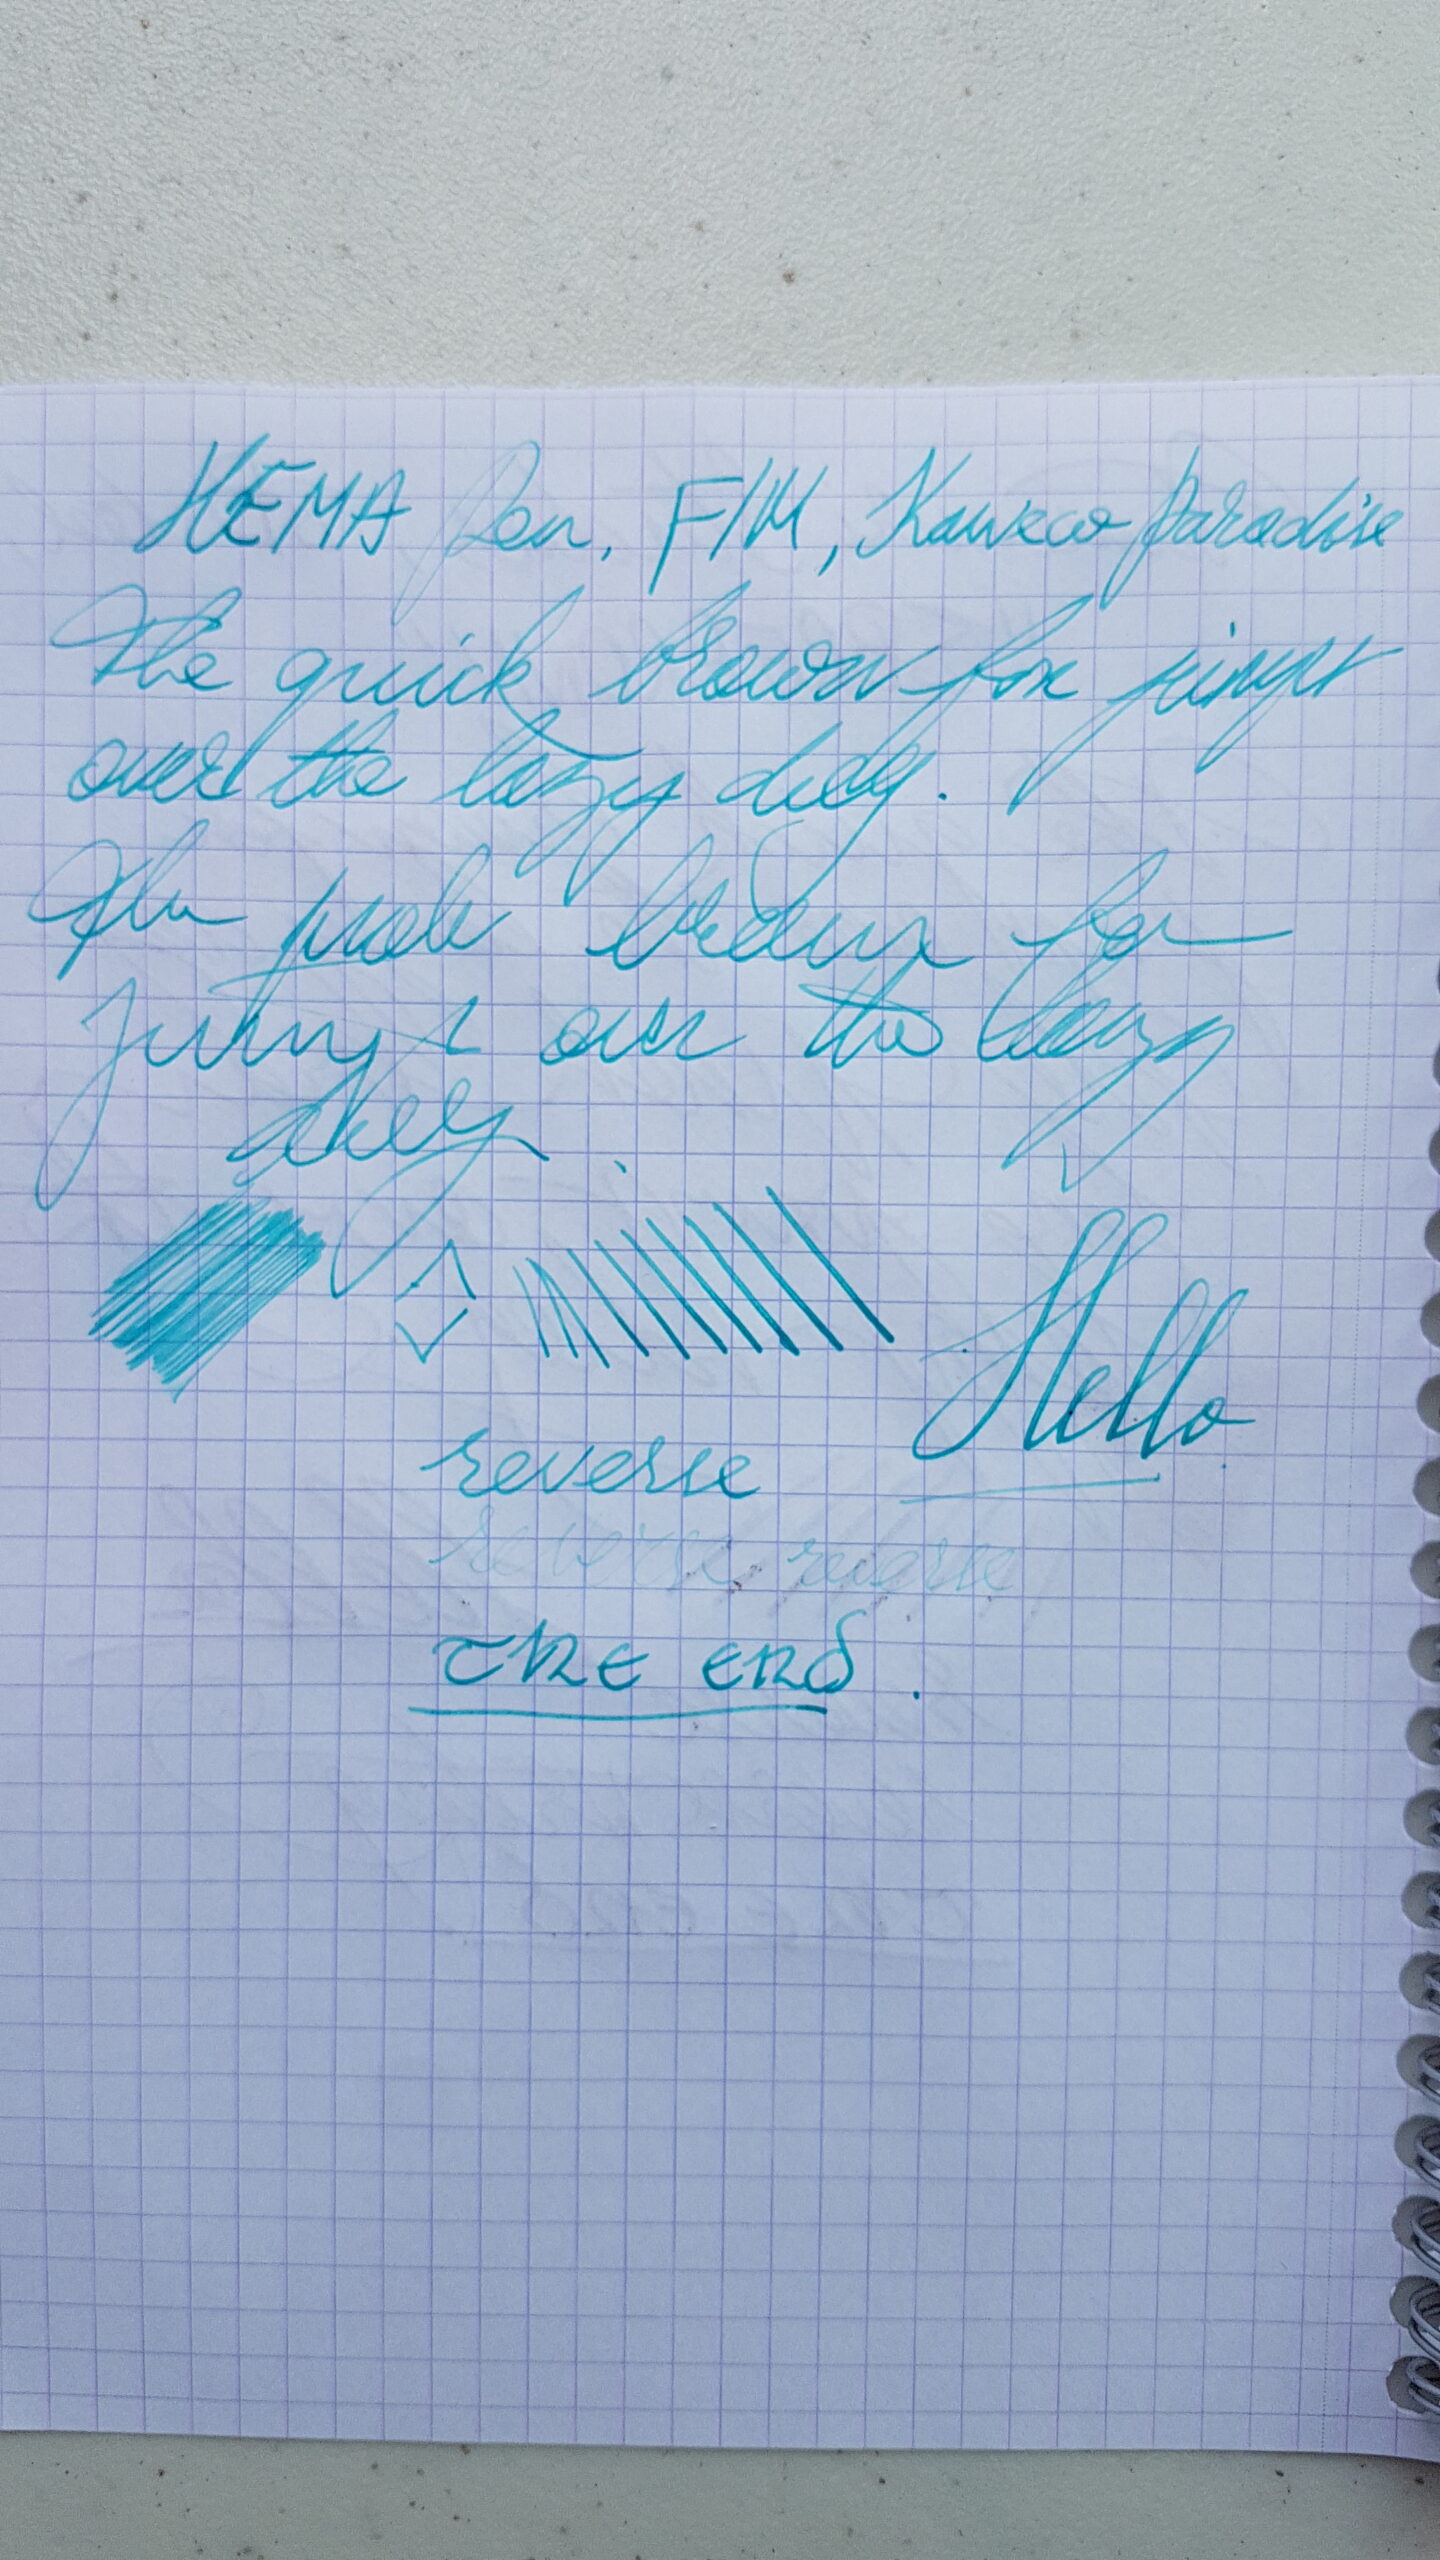 HEMA Pen, F/M, Kaweco Paradise
The quick brown fox jumps
over the lazy dog.
The quick brown fox
jumps over the lazy
dog.
Hello
reverse
reverse reverse
The end.